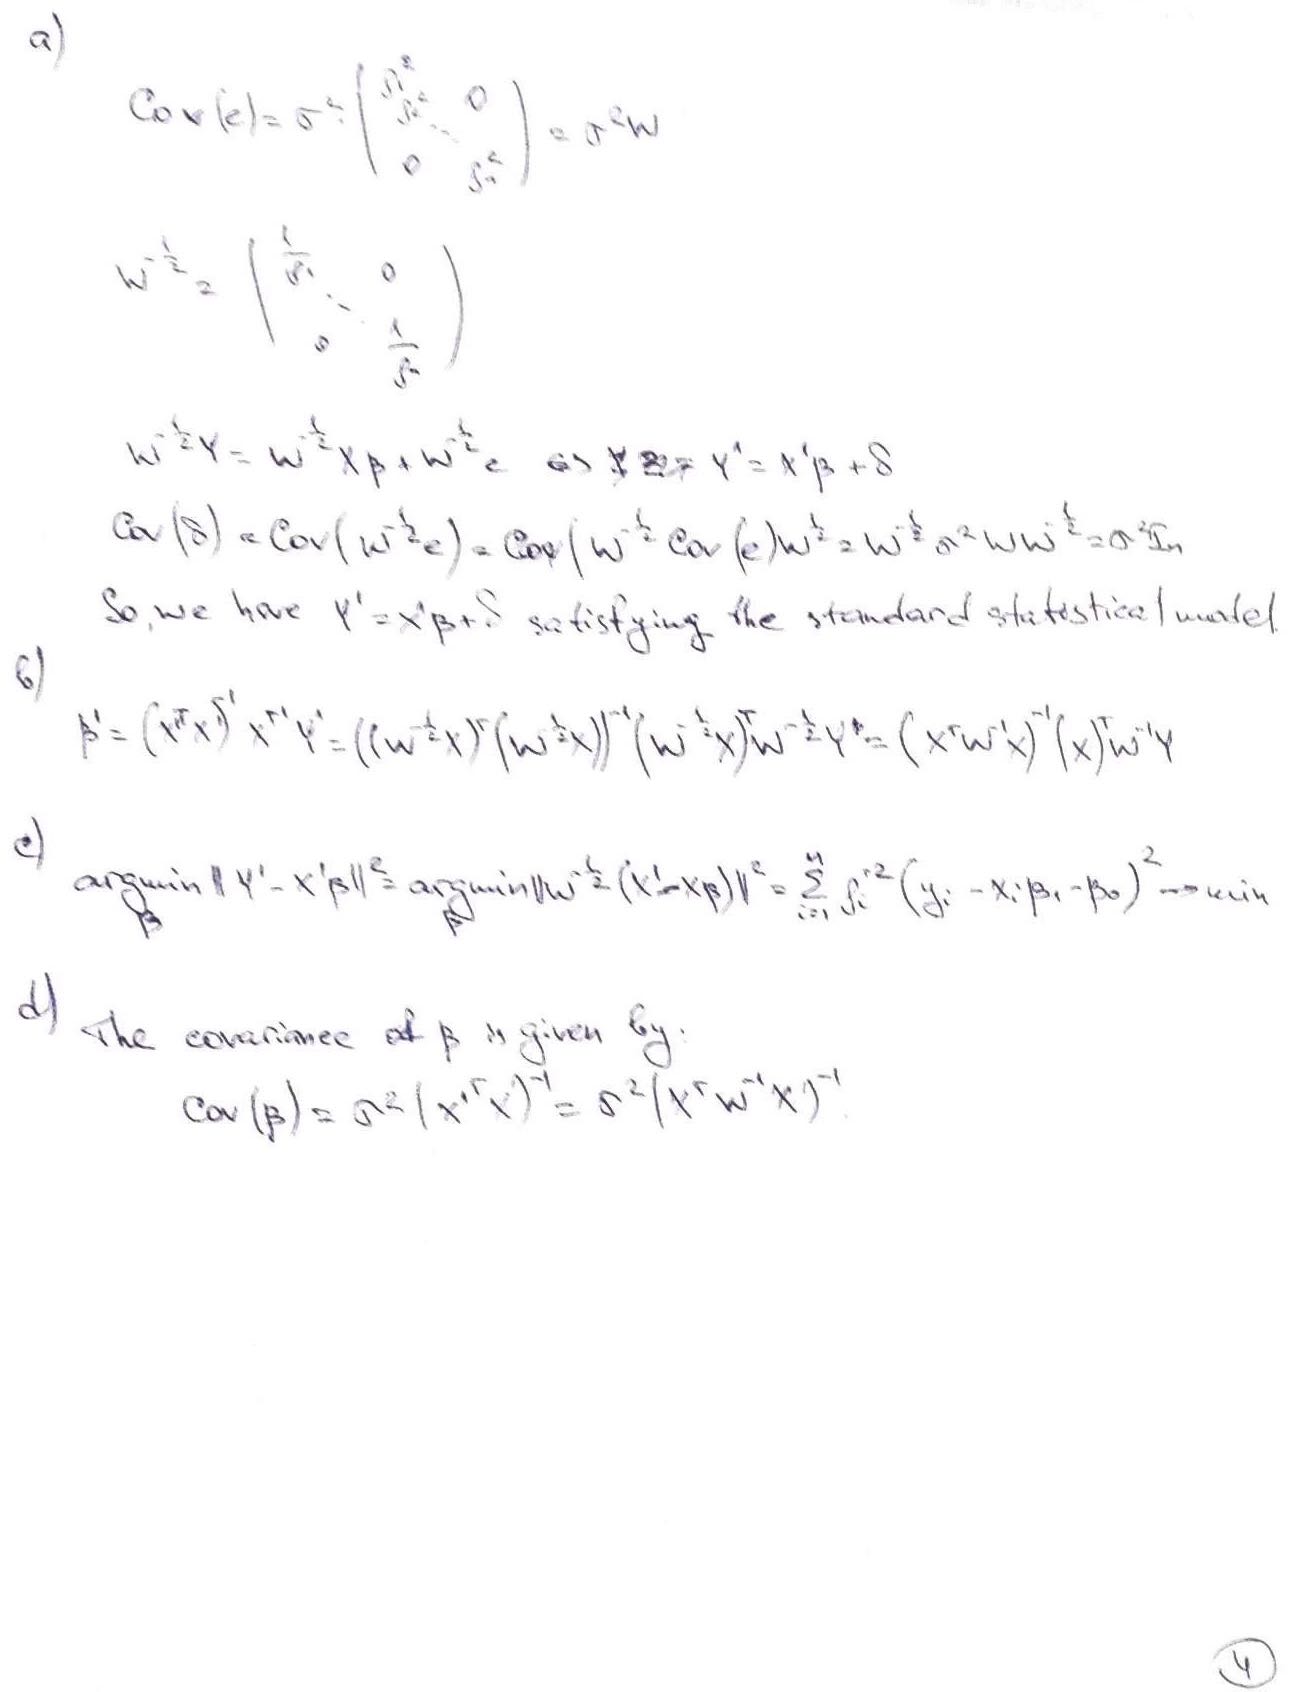 a)
Cov(e) = σ² · ( ρ₁² ρ₂² ⋱ 0 0 ρₙ² ) = σ²W
W^{-1/2} = ( 1/ρ₁ 0 ⋱ 0 1/ρₙ )
W^{-1/2}Y = W^{-1/2}Xβ + W^{-1/2}e ⇔ Y' = X'β + δ
Cov(δ) = Cov(W^{-1/2}e) = Cov(W^{-1/2} Cov(e)W^{1/2} = W^{-1/2}σ²WW^{-1/2} = σ²Iₙ
So, we have Y' = X'β + δ satisfying the standard statistical model.
b)
β' = (X'ᵀX')⁻¹ X'ᵀY' = ((W^{-1/2}X)ᵀ(W^{-1/2}X))⁻¹(W^{-1/2}X)ᵀW^{-1/2}Y = (XᵀW⁻¹X)⁻¹(X)ᵀW⁻¹Y
c)
argmin_β ||Y' - X'β||² = argmin_β ||W^{-1/2}(X' - Xβ)||² = Σ_{i=1}^{n} ρᵢ⁻²(yᵢ - xᵢβ₁ - β₀)² → min
d)
The covariance of β is given by:
Cov(β) = σ²(X'ᵀX')⁻¹ = σ²(XᵀW⁻¹X)⁻¹.
4